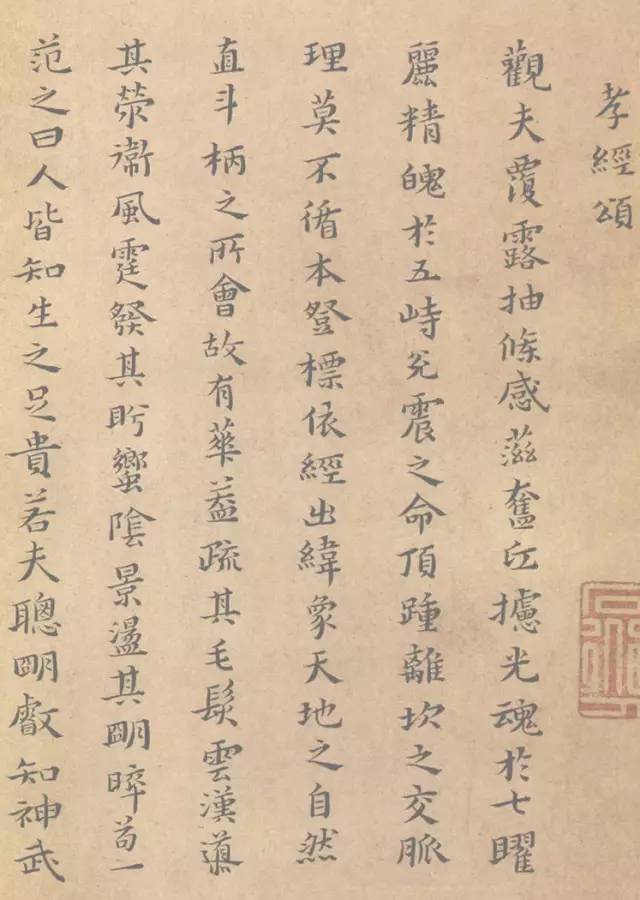 孝經頌
觀夫覆露抽條感奮丘攄光魂於七曜
麗精魄於五峙兌震之命頂踵離坎之交脈
理莫不循本登標依經出緯象天地之自然
直斗柄之所會故有華蓋疏其毛髮雲漢導
其滎衞風霆發其肸蠁陰景盪其明晬苟一
范之曰人皆知生之足貴若夫聰明叡知神武